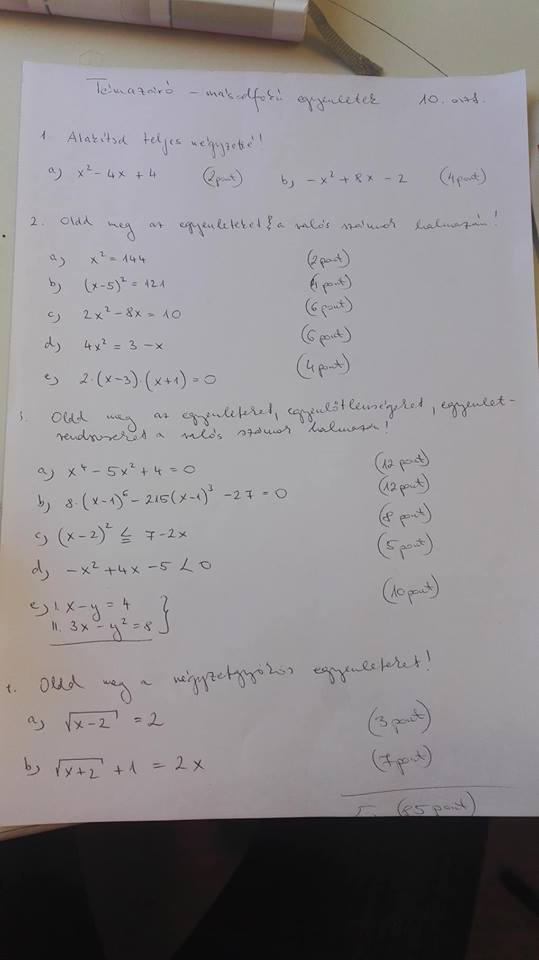 Témazáró – másodfokú egyenletek 10. oszt.
1. Alakítsd teljes négyzetté!
a) x² - 4x + 4 (2 pont) b) -x² + 8x - 2 (4 pont)
2. Oldd meg az egyenleteket a valós számok halmazán!
a) x² = 144 (2 pont)
b) (x-5)² = 121 (4 pont)
c) 2x² - 8x = 10 (6 pont)
d) 4x² = 3 - x (6 pont)
e) 2·(x-3)·(x+1) = 0 (4 pont)
3. Oldd meg az egyenleteket, egyenlőtlenségeket, egyenlet-
rendszereket a valós számok halmazán!
a) x⁴ - 5x² + 4 = 0 (12 pont)
b) 8·(x-1)⁶ - 215(x-1)³ - 27 = 0 (12 pont)
c) (x-2)² ≦ 7-2x (8 pont)
d) -x² + 4x - 5 < 0 (5 pont)
e) I. x - y = 4 (10 pont)
II. 3x - y² = 8
4. Oldd meg a négyzetgyökös egyenleteket!
a) √(x-2) = 2 (3 pont)
b) √(x+2) + 1 = 2x (7 pont)
(85 pont)